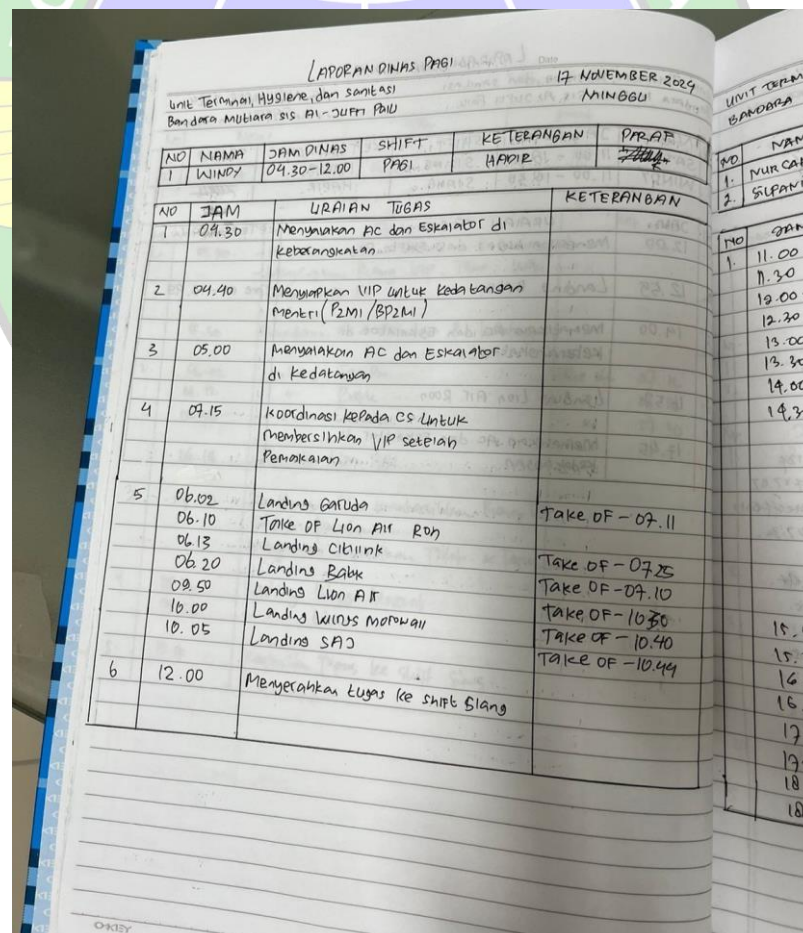 LAPORAN DINAS PAGI
Unit Terminal, Hygiene, dan sanitasi
17 NOVEMBER 2024
Bandara Mutiara sis Al-Jufri Palu
MINGGU
NO NAMA JAM DINAS SHIFT KETERANGAN PARAF
1 WINDY 04.30-12.00 PAGI HADIR
NO JAM URAIAN TUGAS KETERANGAN
1 04.30 Menyalakan AC dan Eskalator di
keberangkatan
2 04.40 Menyiapkan VIP untuk kedatangan
Mentri (P2MI/BP2MI)
3 05.00 Menyalakan AC dan Eskalator
di kedatangan
4 07.15 Koordinasi kepada CS untuk
membersihkan VIP setelah
Pemakaian
5 06.02 Landing Garuda Take OF - 07.11
06.10 Take OF Lion Air Ron
06.13 Landing Citilink Take OF - 07.25
06.20 Landing Batik Take OF - 07.10
09.50 Landing Lion Air Take OF - 10.30
10.00 Landing Wings Morowali Take OF - 10.40
10.05 Landing SAJ Take OF - 10.44
6 12.00 Menyerahkan tugas ke shift Siang
UNIT TERM
BANDARA
NO NAM
1. NUR CA
2. SILPANI
NO JAM
1. 11.00
11.30
12.00
12.30
13.00
13.30
14.00
14.3
15.
15.
16
16
17
17
18
18